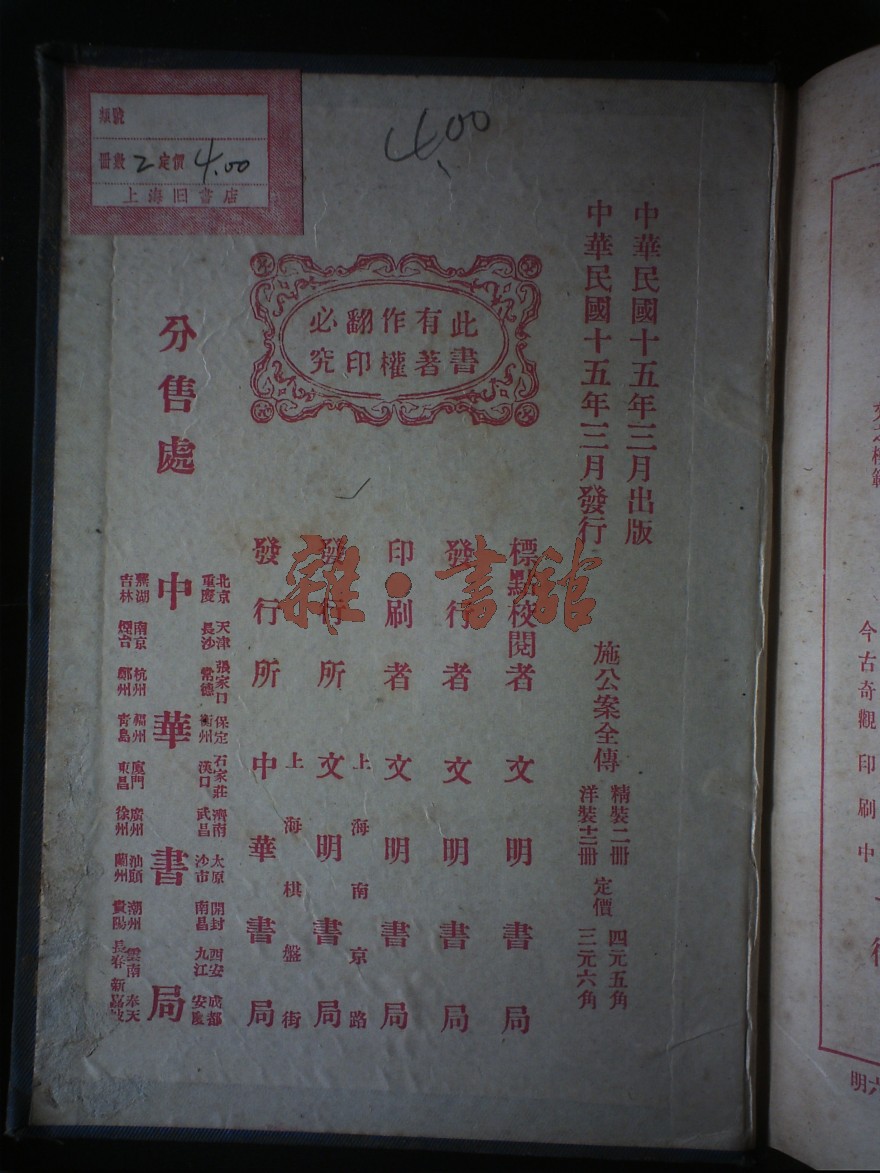 類號
冊數 2 定價 4.00
上海旧書店
4.00
中華民國十五年三月出版
中華民國十五年三月發行
此書有著作權翻印必究
施公案全傳
精裝二冊
洋裝十二冊
定價
四元五角
三元六角
標點校閱者 文明書局
發行者 文明書局
印刷者 文明書局
上海南京路
發行所 文明書局
上海棋盤街
發行所 中華書局
分售處 中華書局
北京 天津 張家口 保定 石家莊 濟南 太原 開封 西安 成都
重慶 長沙 常德 衡州 漢口 武昌 沙市 南昌 九江 安慶
蕪湖 南京 杭州 福州 廈門 廣州 汕頭 潮州 雲南 奉天
吉林 煙台 鄭州 青島 東昌 徐州 蘭州 貴陽 長春 新嘉坡
雜·書館
今古奇觀印刷中